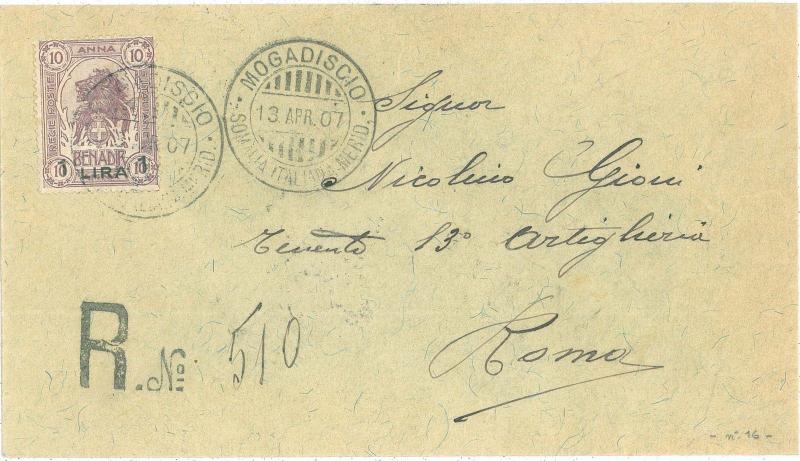 10 ANNA 10
REGIE POSTE
ITALIANE
BENADIR
1 LIRA 1
MOGADISCIO
13 APR. 07
SOMALIA ITALIANA MERID.
Signor
Nicolino Gioni
Tenente 13° Artiglieria
Roma
R. No. 510
- n°. 16 -